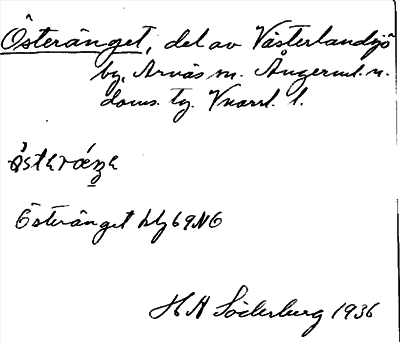 Österänget, del av Västerlandsjö
by, Arnäs sn. Ångerml. n.
doms. tg. Vnorrl. l.
Österänget blz 69 NO
H A Söderberg 1936